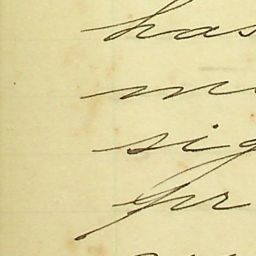 has
m
sig
pr